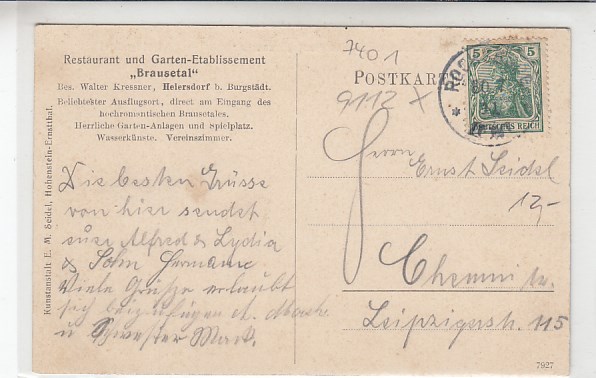 Restaurant und Garten-Etablissement
„Brausetal“
Bes. Walter Kressner, Heiersdorf b. Burgstädt.
Beliebtester Ausflugsort, direct am Eingang des
hochromantischen Brausetales.
Herrliche Garten-Anlagen und Spielplatz.
Wasserkünste. Vereinszimmer.
Kunstanstalt E. M. Seidel, Hohenstein-Ernstthal.
Die besten Grüsse
von hier sendet
euer Alfred & Lydia
& Sohn Hermann
Viele Grüße erlaubt
sich beizufügen
u
7401
POSTKARTE
9112 X
5 5
DEUTSCHES REICH
Herrn Ernst Seidel
12,-
Chemnitz.
Leipzigerstr. 115
7927